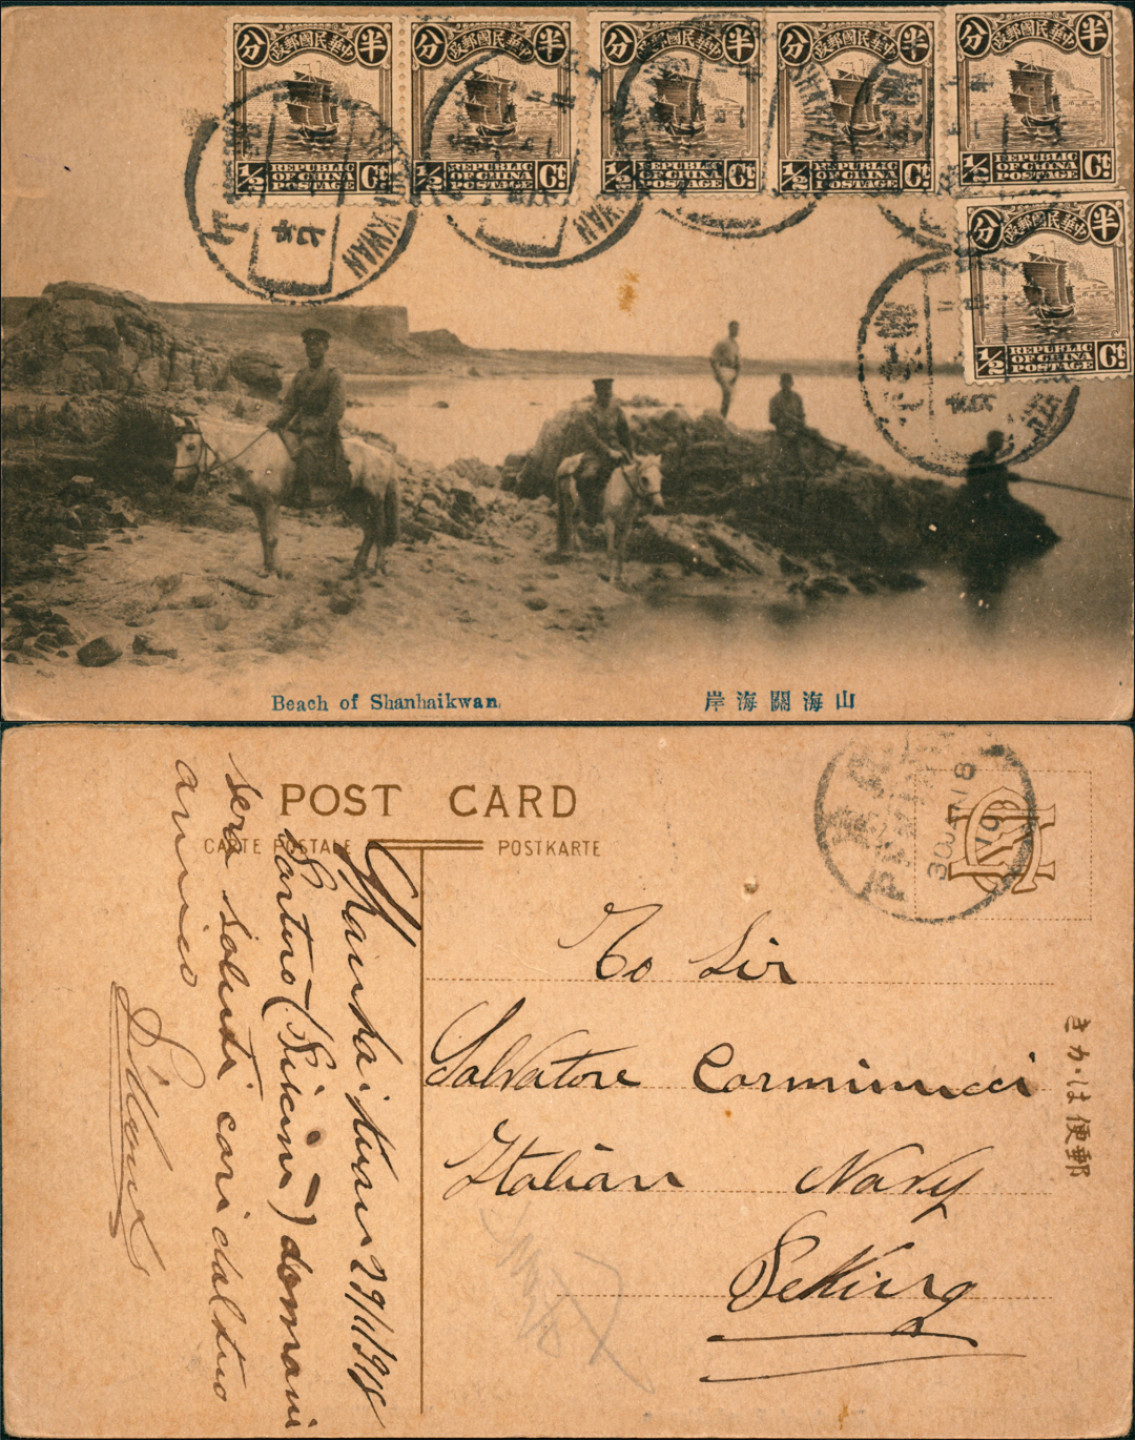 分 中華民國郵政 半
1/2 REPUBLIC OF CHINA POSTAGE Ct
分 中華民國郵政 半
1/2 REPUBLIC OF CHINA POSTAGE Ct
分 中華民國郵政 半
1/2 REPUBLIC OF CHINA POSTAGE Ct
分 中華民國郵政 半
1/2 REPUBLIC OF CHINA POSTAGE Ct
分 中華民國郵政 半
1/2 REPUBLIC OF CHINA POSTAGE Ct
分 中華民國郵政 半
1/2 REPUBLIC OF CHINA POSTAGE Ct
SHANHAIKWAN
Beach of Shanhaikwan.
岸海關海山
POST CARD
CARTE POSTALE
POSTKARTE
30 18
19
To Sir
Salvatore Carminucci
Italian Navy
Peking
きかは便郵
Shanhaikwan 29/11/918
domani
sera saluti cari dal tuo
amico